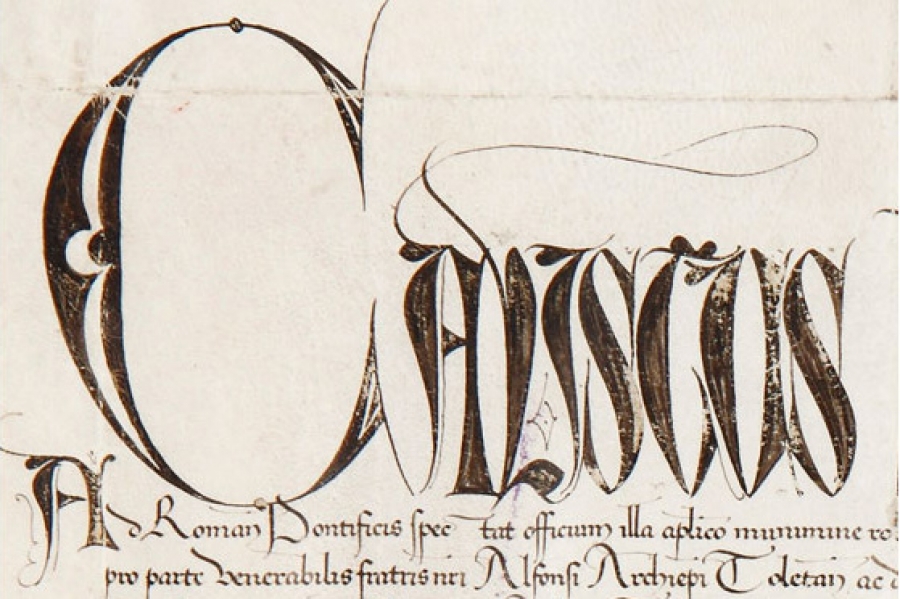 CALISTUS
Ad Roman Pontificis spec tat officium illa aplico munimine
pro parte venerabilis fratris nri Alfonsi Archiepi Toletan ac